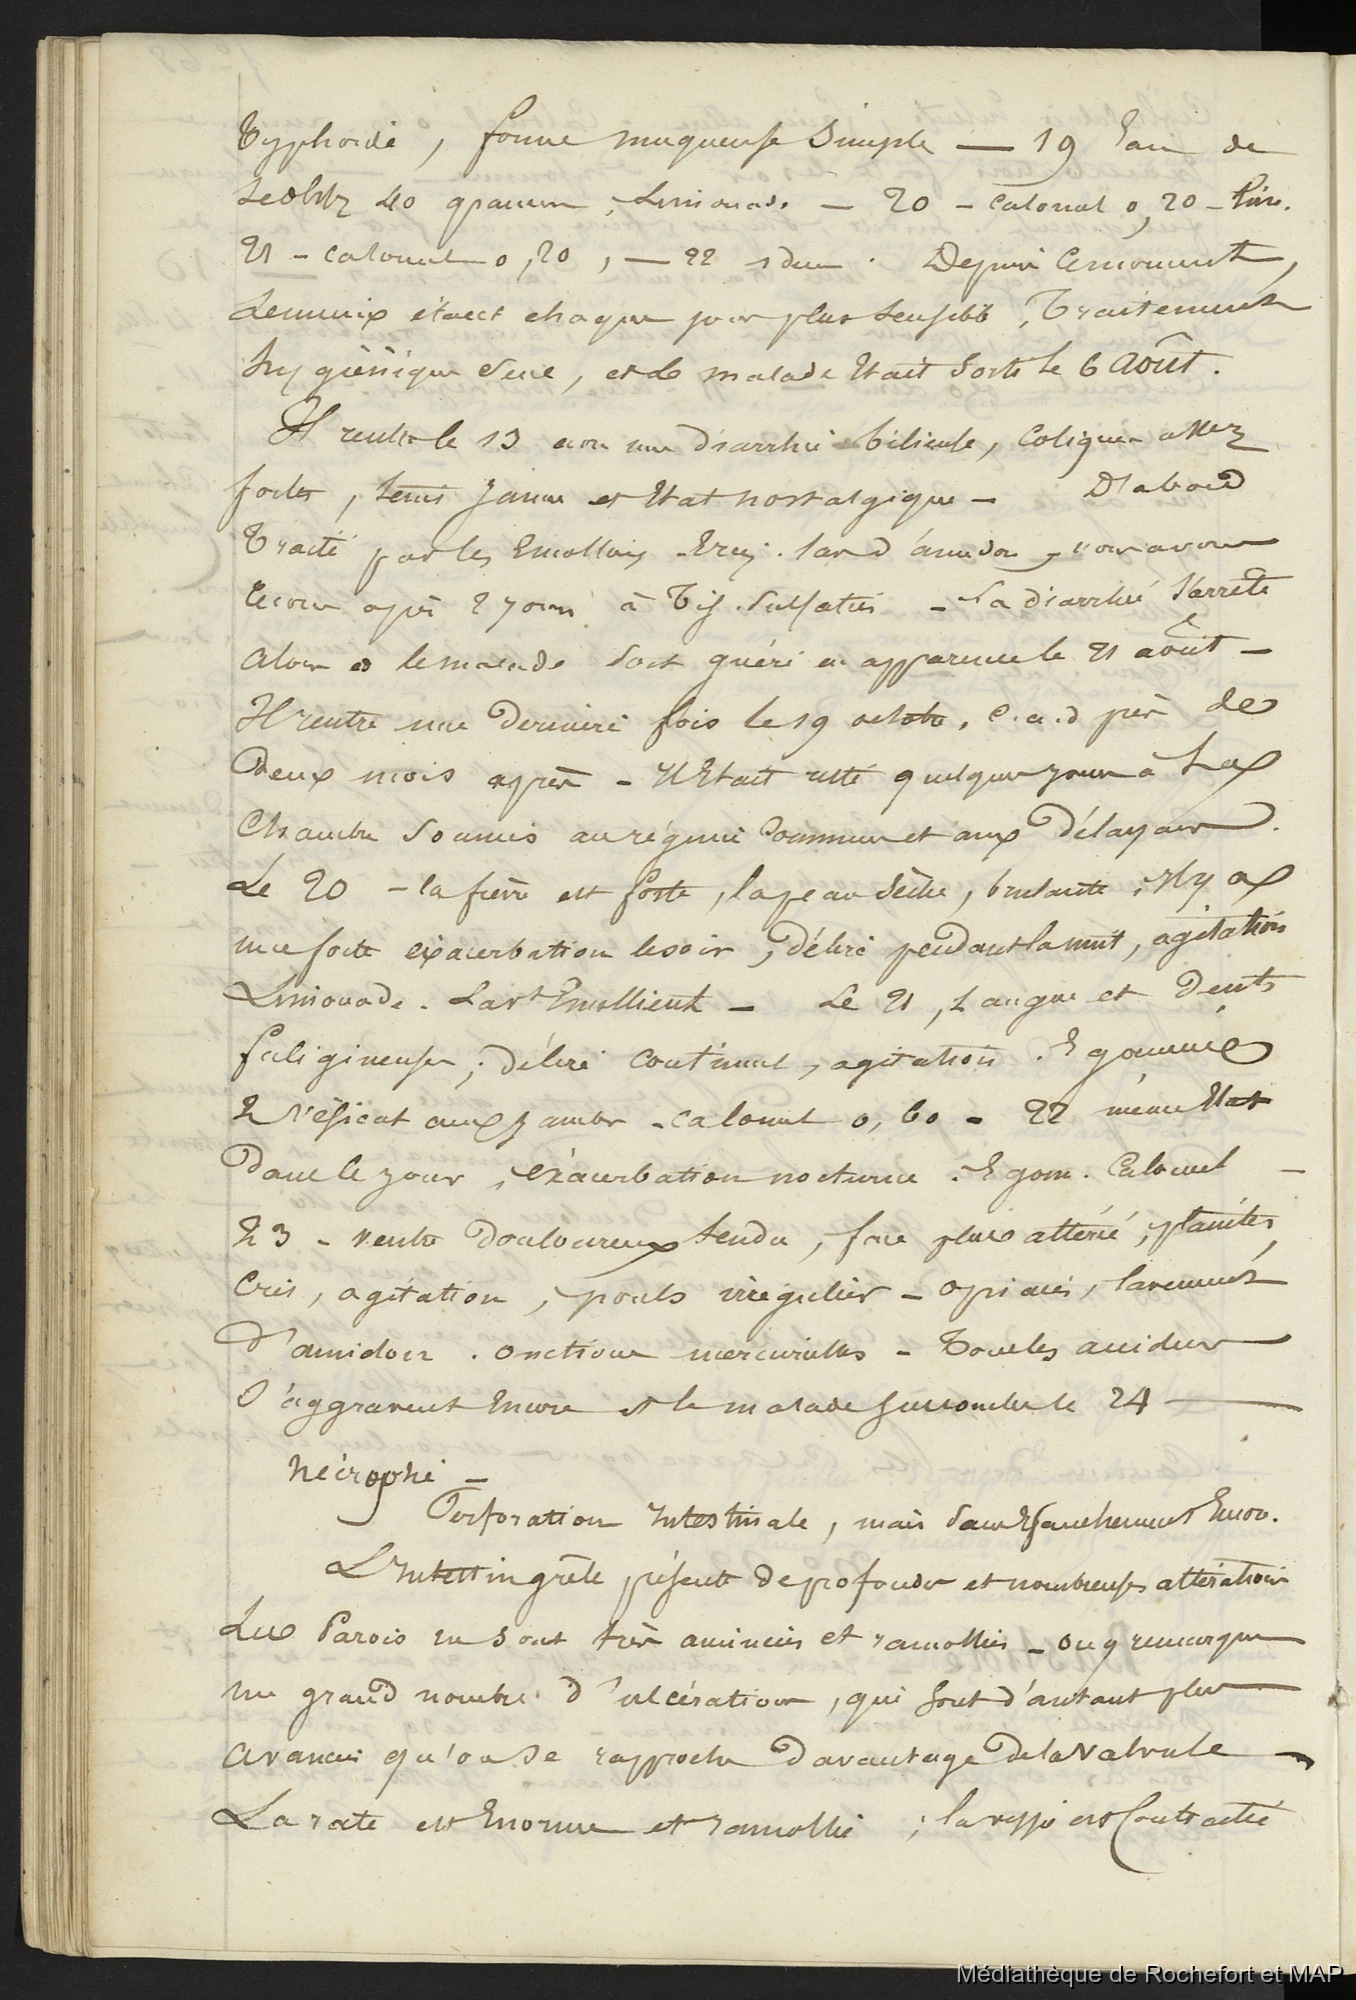 Typhoïde, forme muqueuse simple — 19 Eau de
Sedlitz 40 grammes, Limonade — 20 – calomel 0,20 –
21 – calomel 0,20, — 22 idem. Depuis ce moment,
le mieux étant chaque jour plus sensible, Traitement
hygiénique seul, et le malade était sorti le 6 Août.
Il rentre le 13 avec une diarrhée bilieuse, coliques assez
fortes, teint jaune et état nostalgique – D'abord
Traité par les Emollients. lav d'amidon, nous avons
recours après 2 jours à Tis. Sulfatée – La diarrhée s'arrête
alors et le malade sort guéri en apparence le 21 août –
Il rentre une dernière fois le 19 octobre, c.a.d près de
deux mois après – Il était resté quelques jours à la
chambre soumis au régime commun et aux délayans.
Le 20 – la fièvre est forte, la peau sèche, brulante, il y a
une forte exacerbation le soir, délire pendant la nuit, agitation
Limonade. Lavt Emollient – Le 21, Langue et Dents
fuligineuses, délire continuel, agitation. E gommée
2 vésicat aux jambes – calomel 0,60 – 22 même état
Dans le jour, exacerbation nocturne. E gom. Calomel –
23 – ventre douloureux tendu, face plus altérée, plaintes,
Cris, agitation, pouls irrégulier – opiacés, lavement
d'amidon. onctions mercurielles – Tous les accidens
s'aggravent encore et le malade succombe le 24 —
Nécropsie –
Perforation Intestinale, mais sans Epanchement Encore.
L'Intestin grêle présente de profondes et nombreuses altérations
Les Parois en sont très amincies et ramollies – on y remarque
un grand nombre d'ulcérations, qui sont d'autant plus
avancées qu'on se rapproche davantage de la Valvule –
La rate est Enorme et ramollie ; la vessie est Contractée
Médiathèque de Rochefort et MAP